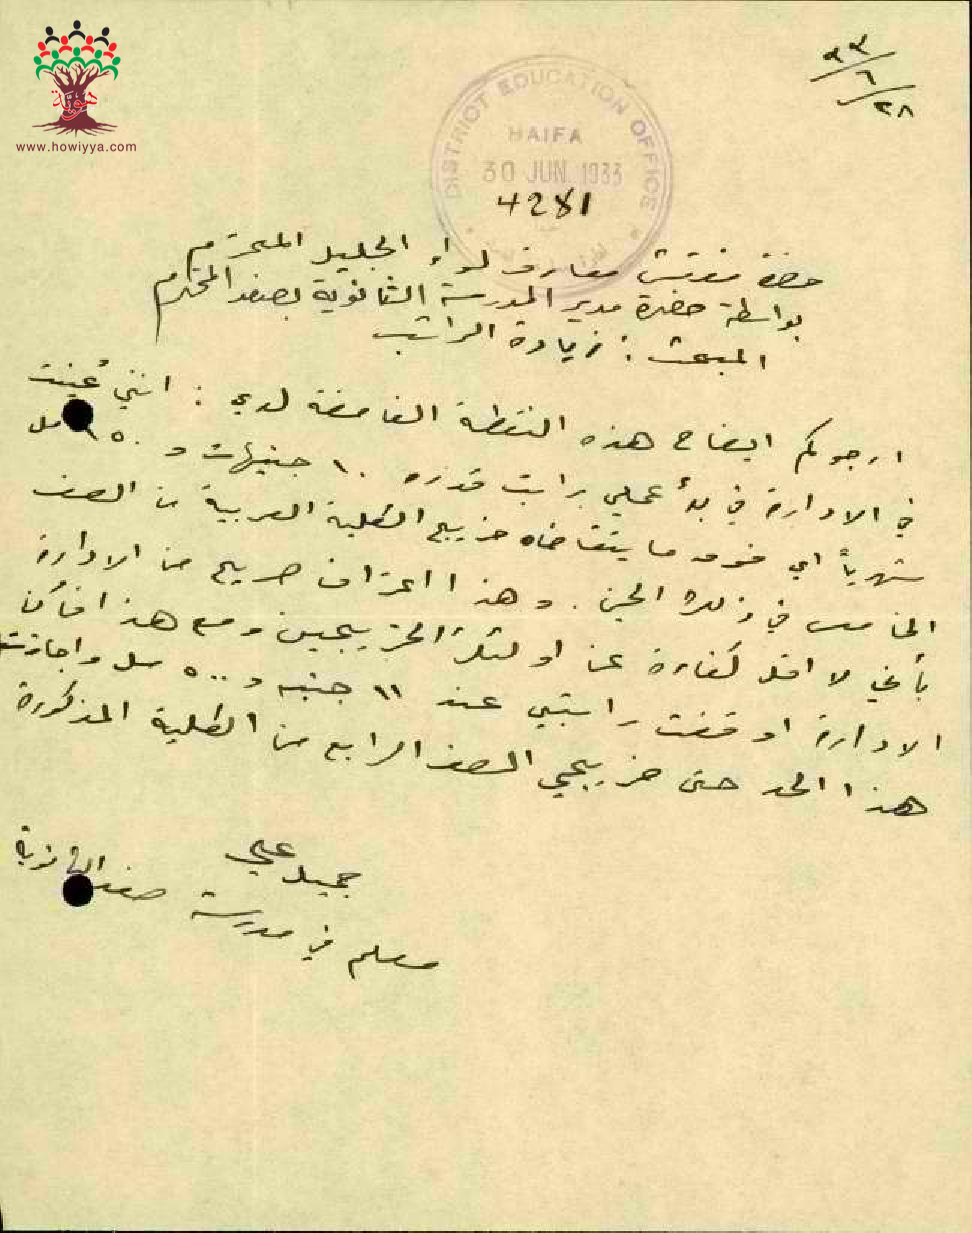 هوية
www.howiyya.com
٣٣/٦/٢٨
DISTRICT EDUCATION OFFICE
HAIFA
30 JUN 1933
4281
حضرة مفتش معارف لواء الجليل المحترم
بواسطة حضرة مدير المدرسة الثانوية بصفد المحترم
المبحث : زيادة الراتب
ارجوكم ايضاح هذه النقطة الغامضة لدي : انني عُينت
في الادارة في بدأ عملي براتب قدره ١٠ جنيهات و مل
شهرياً اي فوق ما يتقاضاه خريج الكلية العربية من الصف
الخامس في ذلك الحين . وهذا اعتراف صريح من الادارة
بأني لا اقل كفاءة عن اولئك الخريجين ومع هذا فأن
الادارة اوقفت راتبي عند ١١ جنيه و ٥٠٠ مل واجازت
هذا الحد حتى خريجي الصف الرابع من الكلية المذكورة
جميل علي
معلم في مدرسة صفد الثانوية